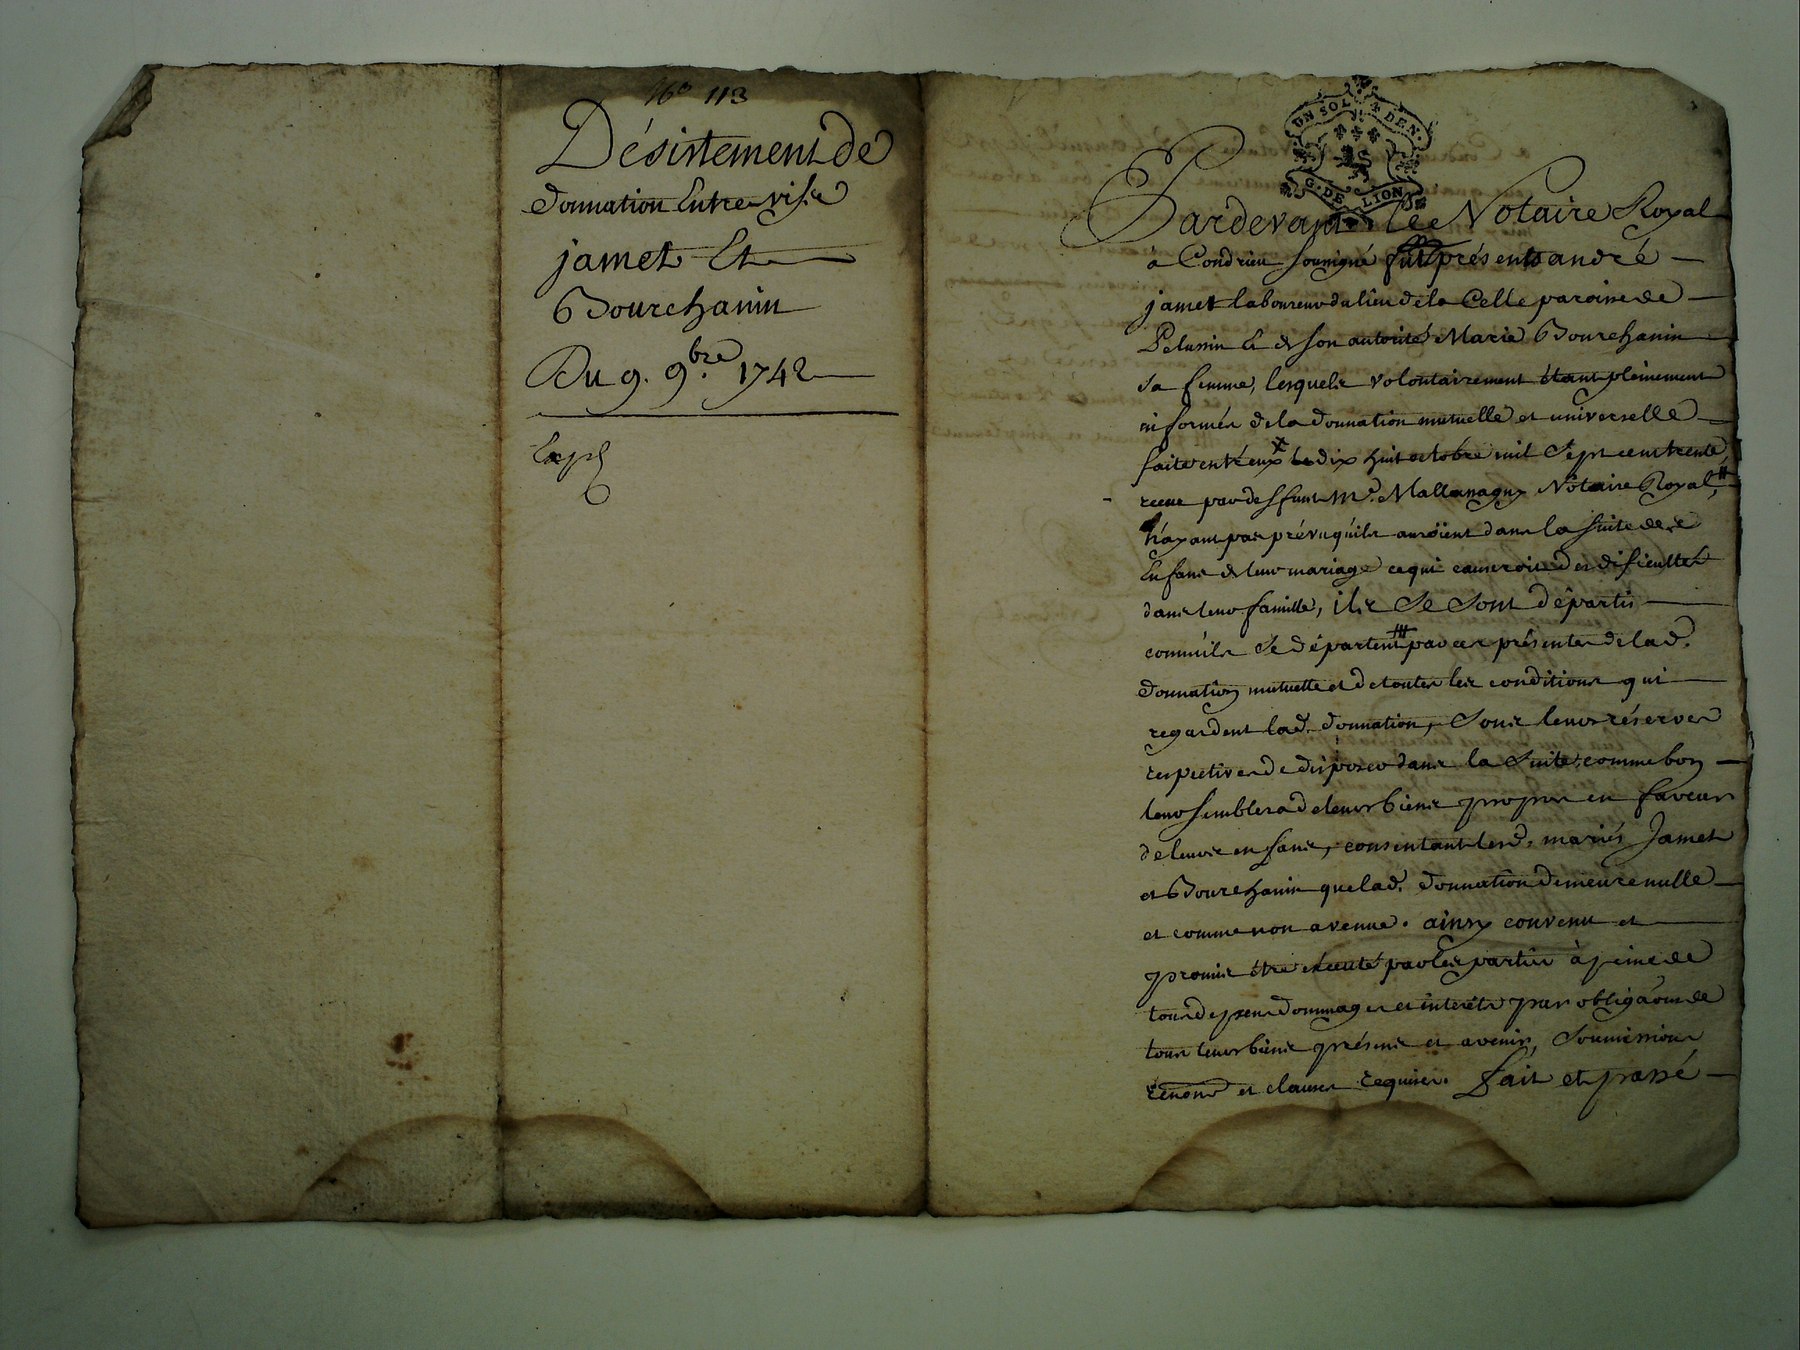 N° 113
Désistement de
donnation Entre vifs
jamet Et
Bourchanin
Du 9. 9bre 1742
Exp
UN SOL 4 DEN.
G. DE LION
Pardevant le Notaire Royal
à Condrieu soussigné présents andré
jamet laboureur du lieu de la Celle paroisse de
Pelussin & de son autorité Marie Bourchanin
sa femme, lesquels volontairement étant pleinement
informés de la donnation mutuelle et universelle
faite entr'eux le dix huit octobre mil sept cent trente
receue par deffunt Me. Mallanagny Notaire Royal,
n'ayant pas prévu qu'ils auroient dans la suite des
Enfans de leur mariage ce qui causeroit des dificultés
dans leur famille, ils se sont départis
comm'ils se départent par ces présentes de lad.
donnation mutuelle et de toutes les conditions qui
regardent lad. donnation, sous leurs réserves
respectives de disposer dans la suite comme bon
leur semblera de leurs biens propres en faveur
de leurs enfans, consentant lesd. mariés Jamet
et Bourchanin que lad. donnation demeure nulle
et comme non avenue. ainsy convenu et
promis être éxecuté par les parties à peine de
tous depens dommages et interêts par obligaõn de
tous leurs biens présens et avenir, soumissions
renons et clauses requises. fait et passé